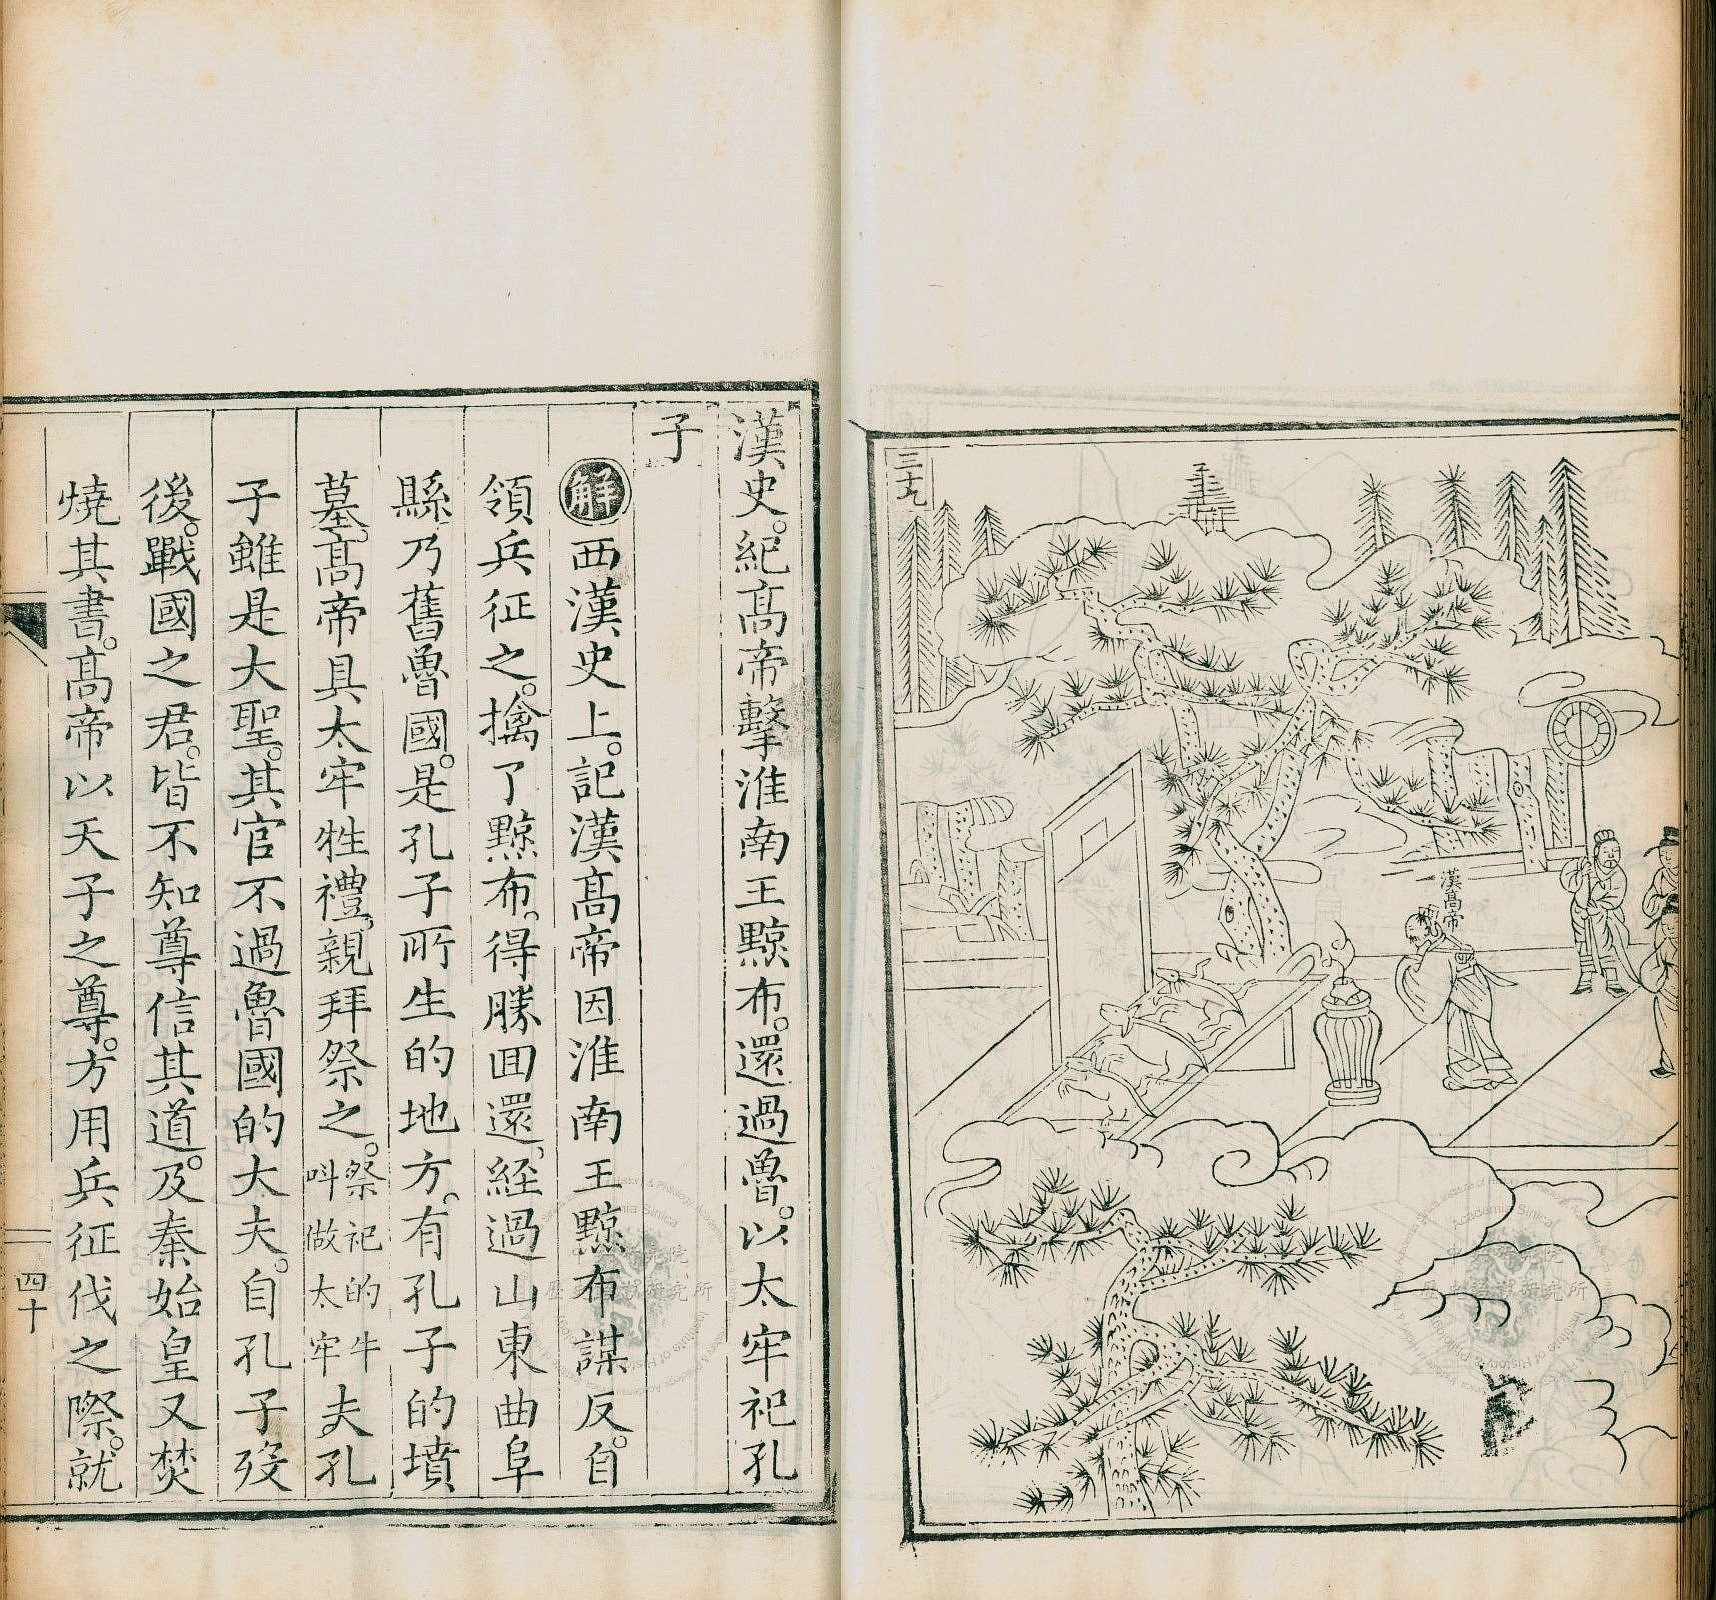 三十九
漢高帝
漢史。紀高帝擊淮南王黥布。還過魯。以太牢祀孔
子
解西漢史上。記漢高帝因淮南王黥布謀反。自
領兵征之。擒了黥布。得勝回還。經過山東曲阜
縣乃舊魯國。是孔子所生的地方。有孔子的墳
墓。高帝具太牢牲禮。親拜祭之。祭祀的牛叫做太牢夫孔
子雖是大聖。其官不過魯國的大夫。自孔子歿
後。戰國之君。皆不知尊信其道。及秦始皇又焚
燒其書。高帝以天子之尊。方用兵征伐之際。就
四十